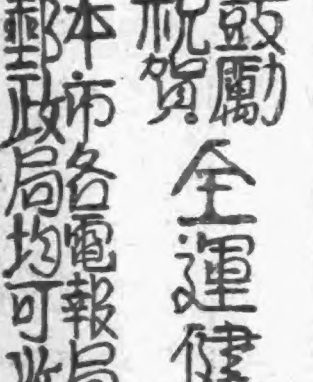 鼓勵
祝賀
全運健
本市各電報局
郵政局均可收